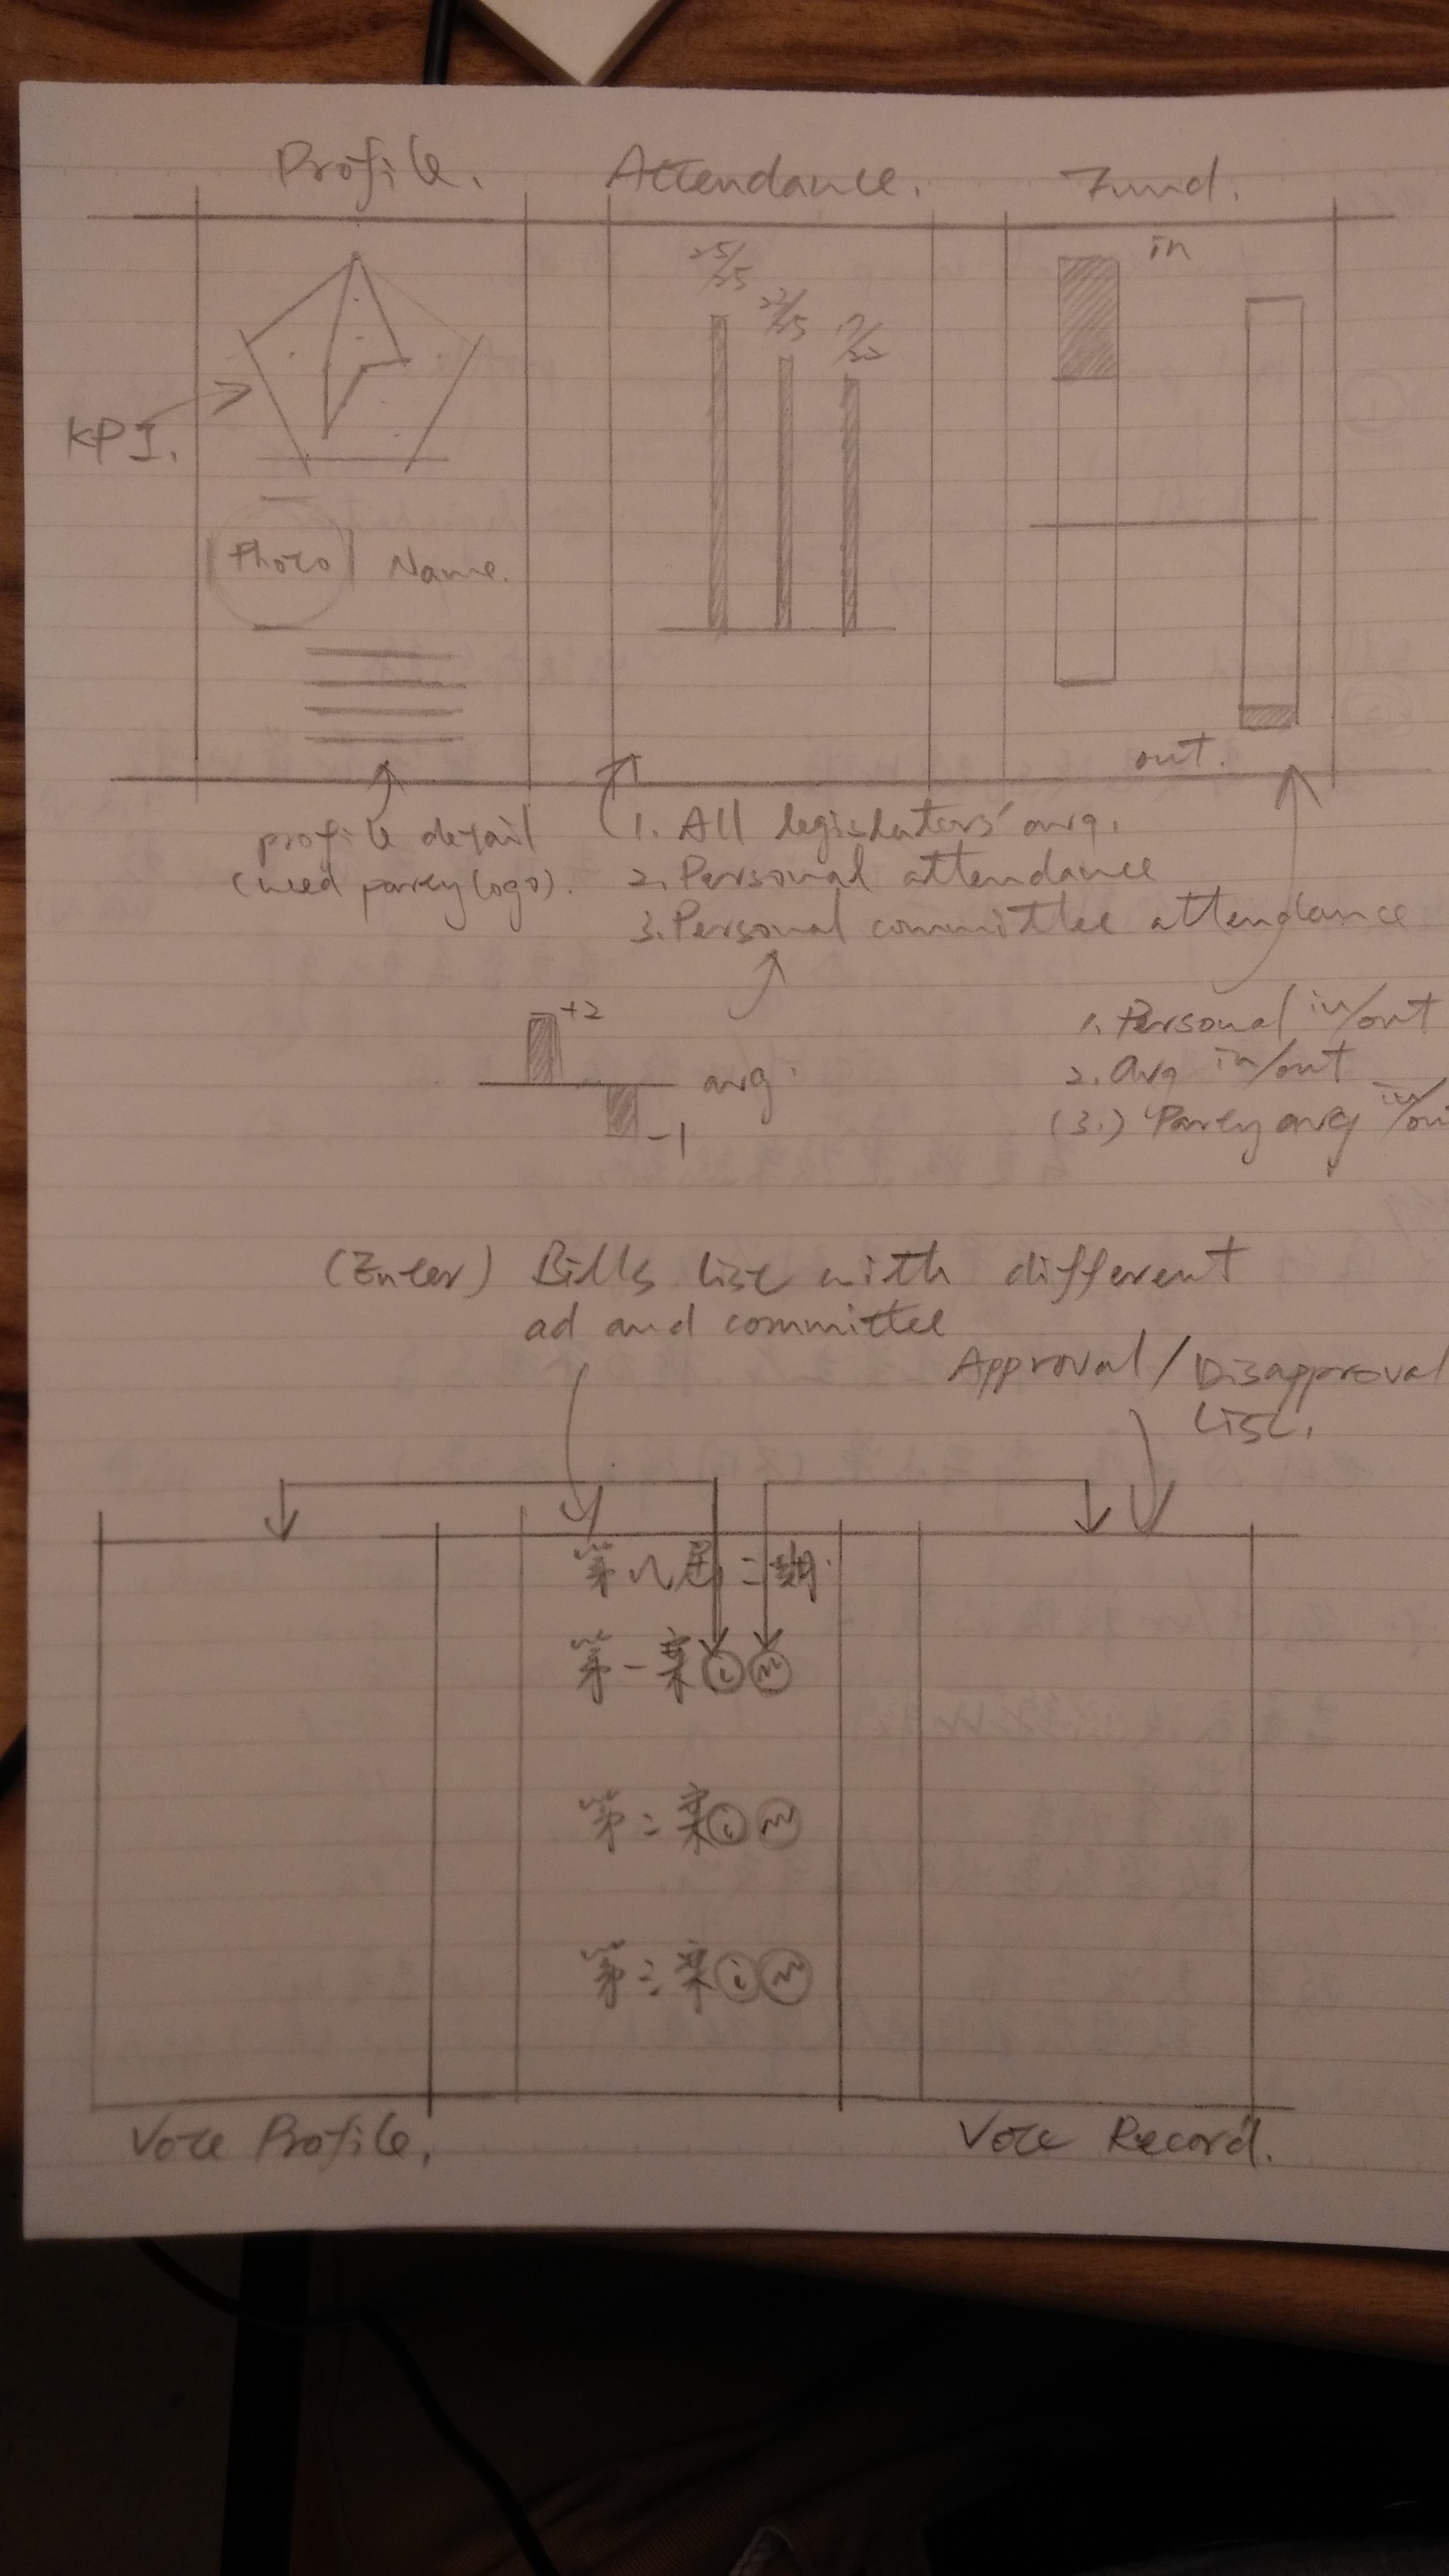 Profile.
Attendance.
Fund.
25/25
22/25
in
KPI.
Photo
Name.
out.
profile detail
(need party logo).
1. All legislators' avg.
2. Personal attendance
3. Personal committee attendance
+2
avg.
-1
1. Personal in/out
2. Avg in/out
(3.) Party avg in/out
(Enter) Bills list with different
ad and committee
Approval / Disapproval
List.
第八屆二期.
第一案 i
第二案 i
第三案 i
Vote Profile.
Vote Record.